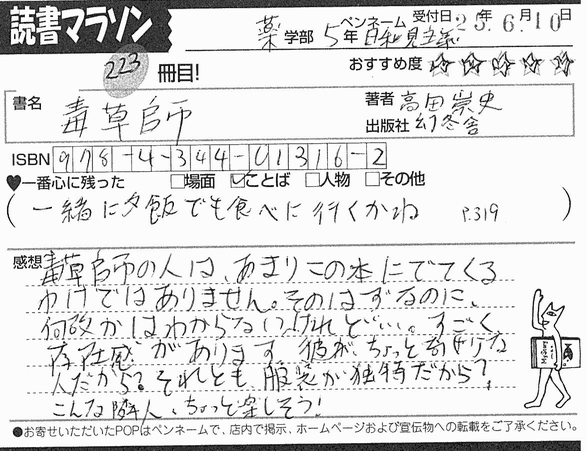 読書マラソン
薬 学部 5年 ペンネーム 日和見主義 受付日 25年 6月10日
223 冊目!
おすすめ度 ☆☆☆☆☆
書名 毒草師
著者 高田崇史
出版社 幻冬舎
ISBN 978-4-344-01316-2
♥一番心に残った □場面 ☑ことば □人物 □その他
(一緒に夕飯でも食べに行くかね P.319)
感想 毒草師の人は、あまりこの本にでてくる
わけではありません。そのはずなのに、
何故かはわからないけれど…。すごく
存在感があります。彼が、ちょっと
人だから?それとも、服装が独特だから?
こんな隣人、ちょっと楽しそう!
●お寄せいただいたPOPはペンネームで、店内で掲示、ホームページおよび宣伝物への転載をご了承ください。